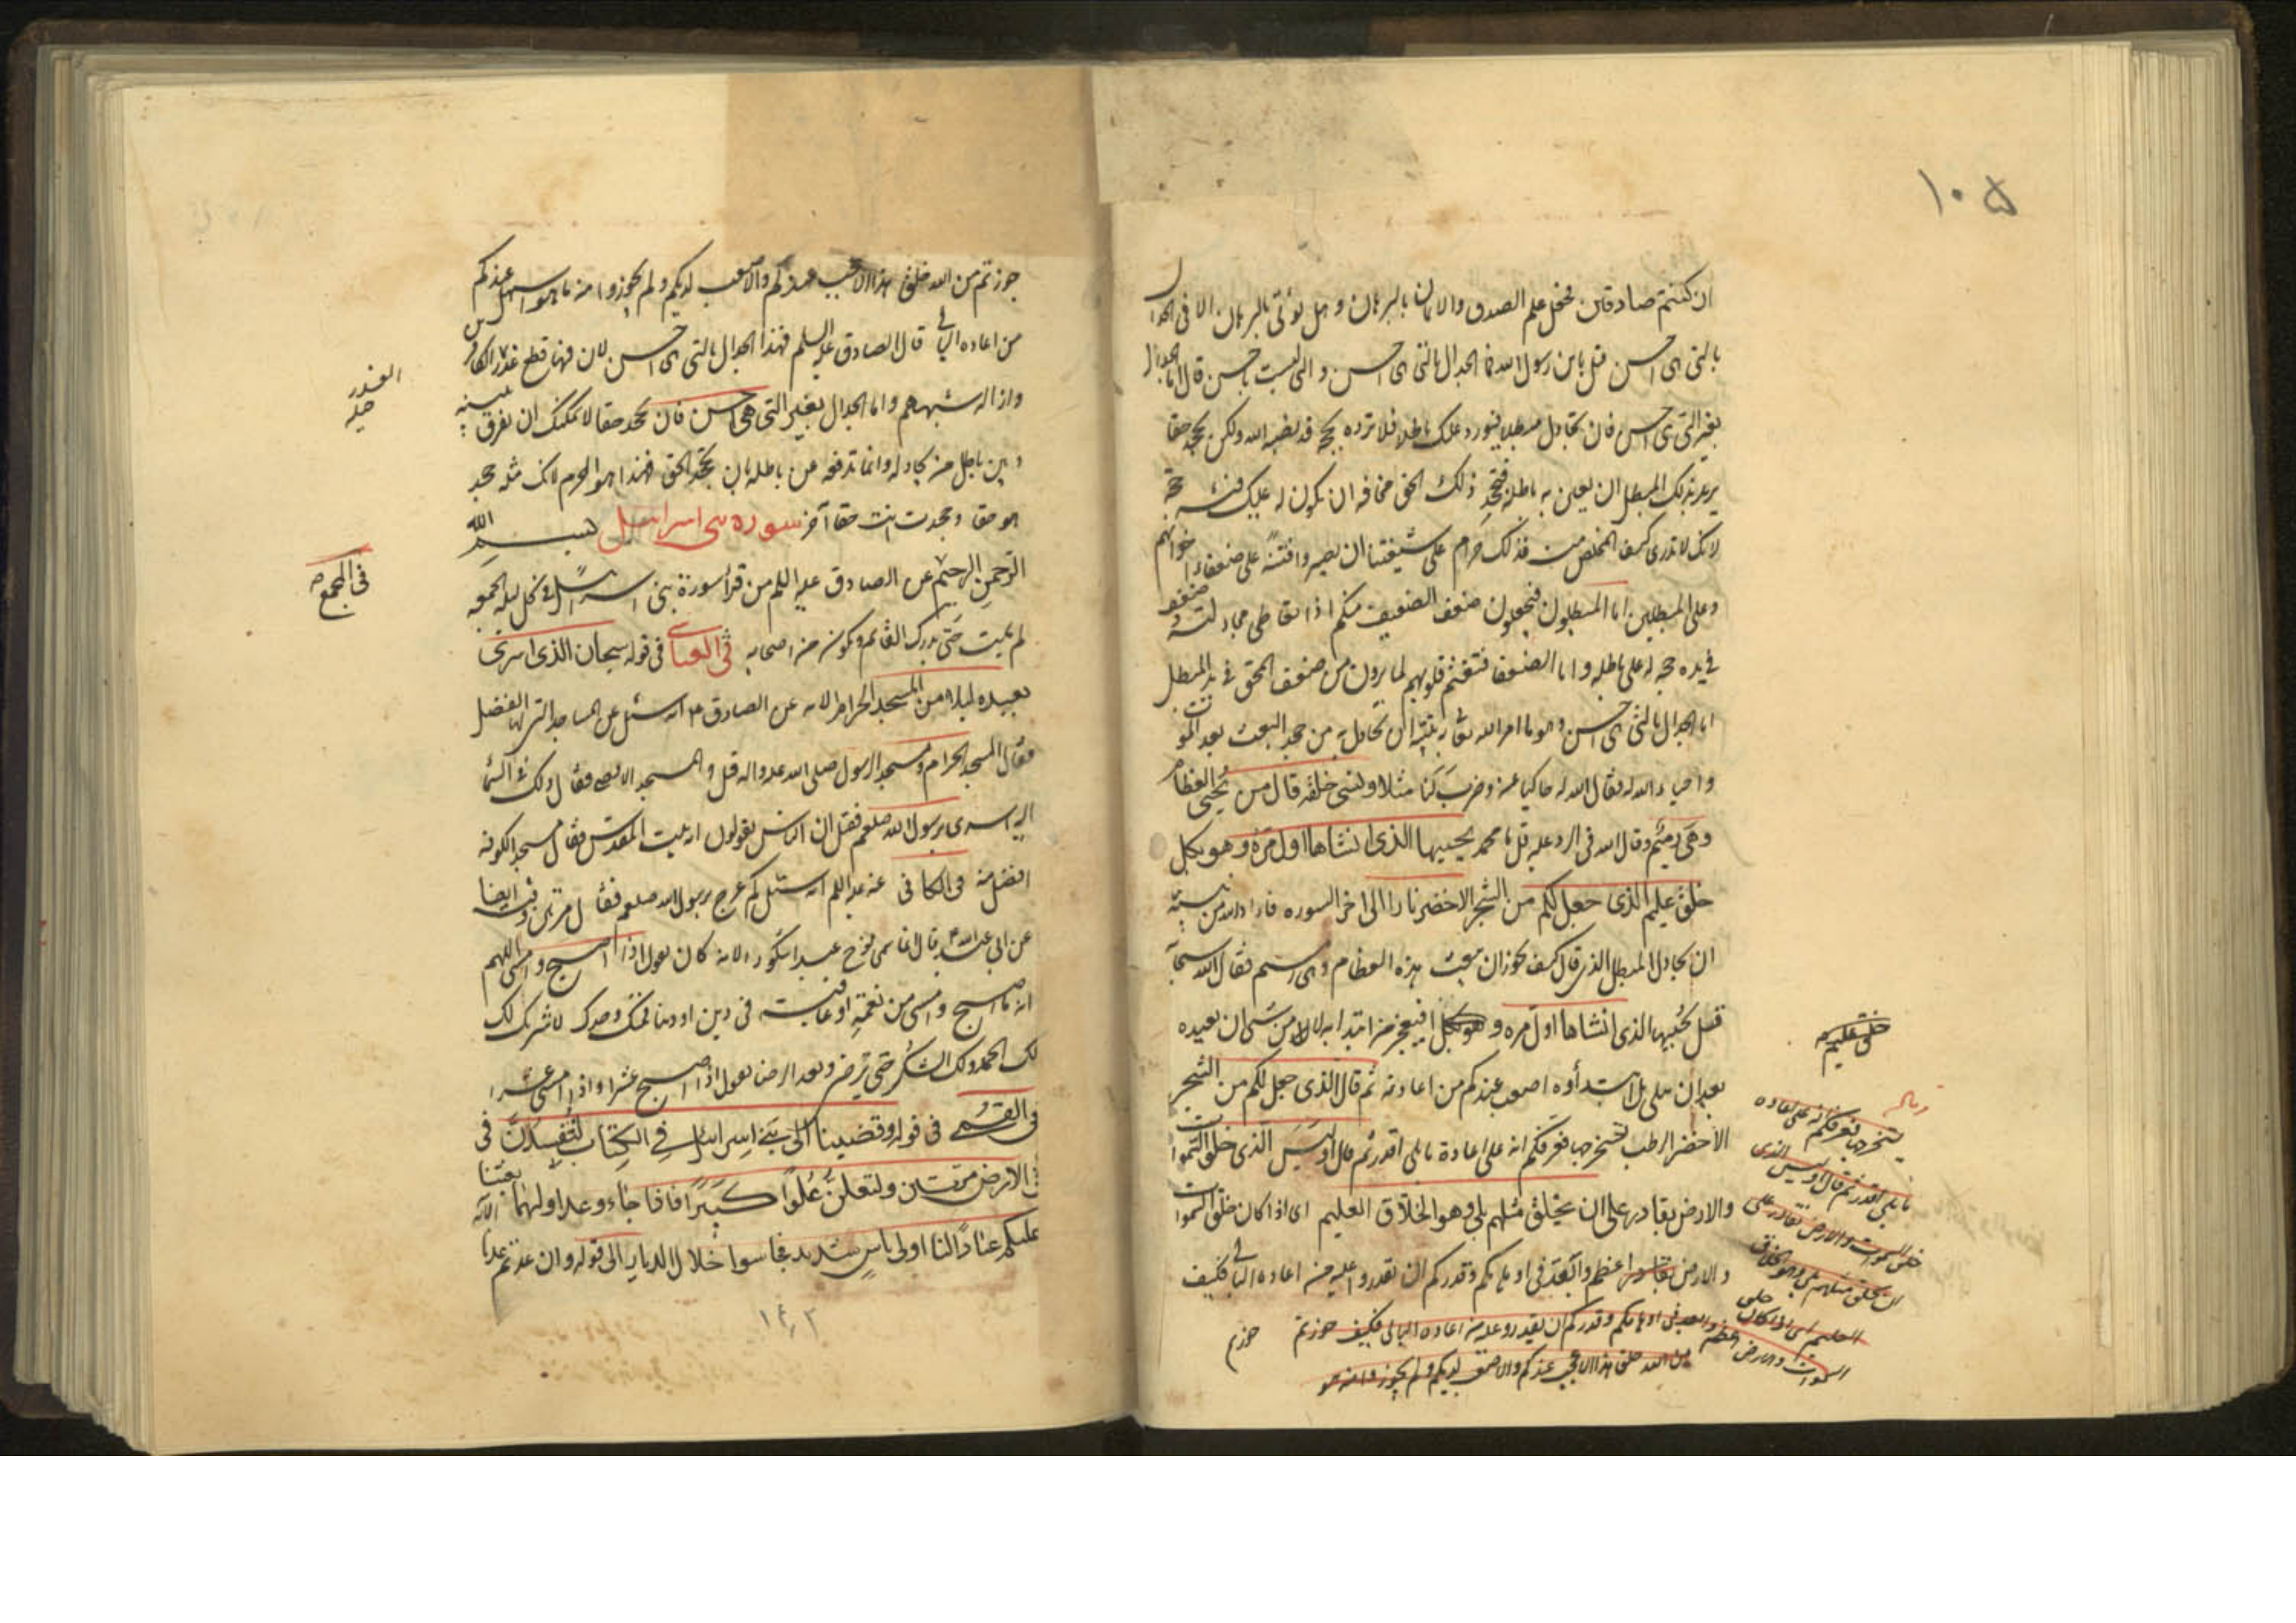 ١٠۵
ان كنتم صادقين فجعل علم الصدق والاتيان بالبرهان وهل يؤتى بالبرهان الا فى الجدال
بالتى هى احسن قيل يابن رسول الله فما الجدال بالتى هى احسن والتى ليست باحسن قال اما الجدال
بغير التى هى احسن فان تجادل مبطلا فيورد عليك باطلا فلا ترده بحجة قد نصبه الله ولكن تجحد حقا
يريد بذلك المبطل ان يعين به باطله فتجحد ذلك الحق مخافة ان يكون له عليك فيه حجة
لانك لا تدرى كيف المخلص منه فذلك حرام على شيعتنا ان يصيروا فتنة على ضعفاء اخوانهم
وعلى المبطلين اما المبطلون فيجعلون ضعف الضعيف منكم اذا تعاطى مجادلته وضعف
فى يده حجة له على باطله واما الضعفا فتغتم قلوبهم لما يرون من ضعف المحق فى يد المبطل
اما الجدال بالتى هى احسن وهو ما امر الله تعالى به نبيه ان يجادل به من جحد البعث بعد الموت
واحياءه الله له فقال الله له حاكيا عنه وضرب لنا مثلا ونسى خلقه قال من يحيى العظام
وهى رميم وقال الله فى الرد عليه قل يا محمد يحييها الذى انشاها اول مرة وهو بكل
خلق عليم الذى جعل لكم من الشجر الاخضر نارا الى اخر السورة فاراد الله من نبيه
ان يجادل المبطل الذى قال كيف يجوز ان يبعث هذه العظام وهى رميم فقال الله سبحانه
قل يحييها الذى انشاها اول مرة وهو بكل افيعجز من ابتدا به لا من شى ان يعيده
بعد ان يبلى بل ابتدأوه اصعب عندكم من اعادته ثم قال الذى جعل لكم من الشجر
الاخضر الرطب يستخرجها فعرفكم انه على اعادة ما بلى اقدر ثم قال اوليس الذى خلق السموات
والارض بقادر على ان يخلق مثلهم بلى وهو الخلاق العليم اى اذا كان خلق السموات
والارض اعظم وابعد فى اوهامكم وقدركم ان تقدروا عليه من اعادة البالى فكيف
والبعد فى اوهامكم وقدركم ان تقدروا عليه من اعادة البالى فكيف جوزتم
من الله خلق هذا الاعجب عندكم والاصعب لديكم ولم تجوزوا منه هو
جوزتم
خلق عليم
يستخرجها فعرفكم انه على اعادة
ما بلى اقدر ثم قال اوليس الذى
خلق السموات والارض بقادر على
ان يخلق مثلهم بلى وهو الخلاق
العليم اى اذا كان خلق
السموات والارض اعظم
جوزتم من الله خلق هذا الاعجب عندكم والاصعب لديكم ولم تجوزوا منه ما هو اسهل عندكم
من اعادة البالى قال الصادق عليه السلم فهذا الجدال بالتى هى احسن لان فيها قطع عذر الكافرين
وازالة شبههم واما الجدال بغير التى هى احسن فان تجحد حقا لا يمكنك ان تفرق بينه
وبين باطل من تجادله وانما تدفعه عن باطله بان تجحد الحق فهذا هو المحرم لانك مثله جحد
هو حقا وجحدت انت حقا آخر سورة بنى اسرائيل بسم الله
الرحمن الرحيم عن الصادق عليه السلم من قرأ سورة بنى اسرائيل فى كل ليلة الجمعة
لم يمت حتى يدرك القائم ويكون من اصحابه فى العياشى فى قوله سبحان الذى اسرى
بعبده ليلا من المسجد الحرام الاية عن الصادق ع انه سئل عن المساجد التى لها الفضل
فقال المسجد الحرام ومسجد الرسول صلى الله عليه واله قيل والمسجد الاقصى فقال ذلك فى السماء
اليه اسرى برسول الله صلعم فقيل ان الناس يقولون انه بيت المقدس فقال مسجد الكوفة
افضل منه فى الكافى عنه عليه السلم انه سئل كم عرج برسول الله صلعم فقال مرتين وفيه ايضا
عن ابى عبد الله ع قال انما سمى نوح عبدا شكورا لانه كان يقول اذا اصبح وامسى اللهم
انه ما اصبح وامسى من نعمة او عافية فى دين او دنيا فمنك وحدك لا شريك لك
لك الحمد ولك الشكر حتى ترضى وبعد الرضا يقول اذا اصبح عشرا واذا امسى عشرا
فى القمى فى قوله وقضينا الى بنى اسرائيل فى الكتاب لتفسدن فى
الارض مرتين ولتعلن علوا كبيرا فاذا جاء وعد اولهما بعثنا
عليكم عبادا لنا اولى باس شديد فجاسوا خلال الديار الى قوله وان عدتم عدنا الآية
العذر
فى المجمع
١٤٣